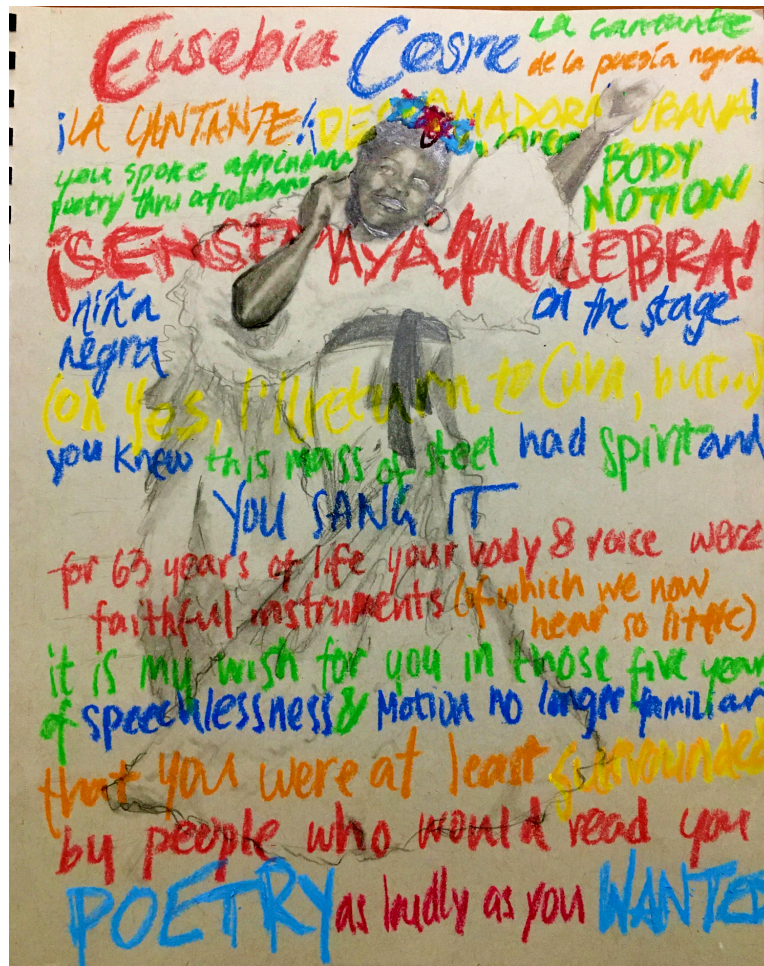 Eusebia Cosme La cantante
de la poesía negra
¡LA CANTANTE! ¡DECLAMADORA CUBANA!
you spoke africubana
poetry thru afrocubana
BODY
MOTION
¡SENSEMAYA! ¡LA CULEBRA!
niña
negra
on the stage
(oh yes, I'll return to Cuba, but...)
you knew this mass of steel had spirit and
YOU SANG IT
for 63 years of life your body & race were
faithful instruments (of which we now
hear so little)
it is my wish for you in those five year
of speechlessness & Motion no longer familiar
that you were at least surrounded
by people who would read you
POETRY as loudly as you WANTED